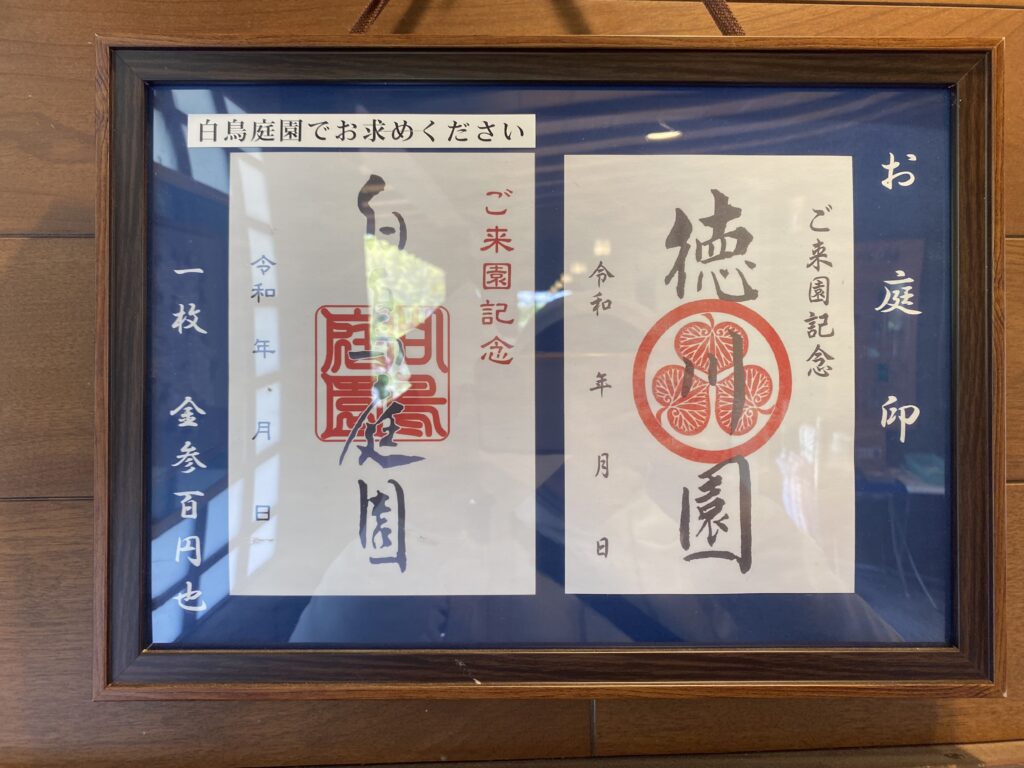 お庭印
ご来園記念
徳川園
令和 年 月 日
白鳥庭園でお求めください
ご来園記念
白鳥庭園
白鳥庭園
令和 年 月 日
一枚 金参百円也